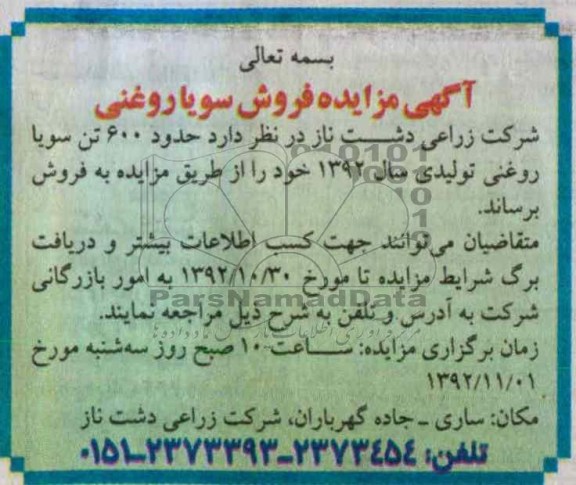 بسمه تعالی
آگهی مزایده فروش سویا روغنی
شرکت زراعی دشت ناز در نظر دارد حدود ۶۰۰ تن سویا
روغنی تولیدی سال ۱۳۹۲ خود را از طریق مزایده به فروش
برساند.
متقاضیان می‌توانند جهت کسب اطلاعات بیشتر و دریافت
برگ شرایط مزایده تا مورخ ۱۳۹۲/۱۰/۳۰ به امور بازرگانی
ParsNamadData
شرکت به آدرس و تلفن به شرح ذیل مراجعه نمایند.
زمان برگزاری مزایده: ساعت ۱۰ صبح روز سه‌شنبه مورخ
۱۳۹۲/۱۱/۰۱
مکان: ساری ـ جاده گهرباران، شرکت زراعی دشت ناز
تلفن: ۲۳۷۳۴۵۴-۲۳۷۳۳۹۳-۰۱۵۱